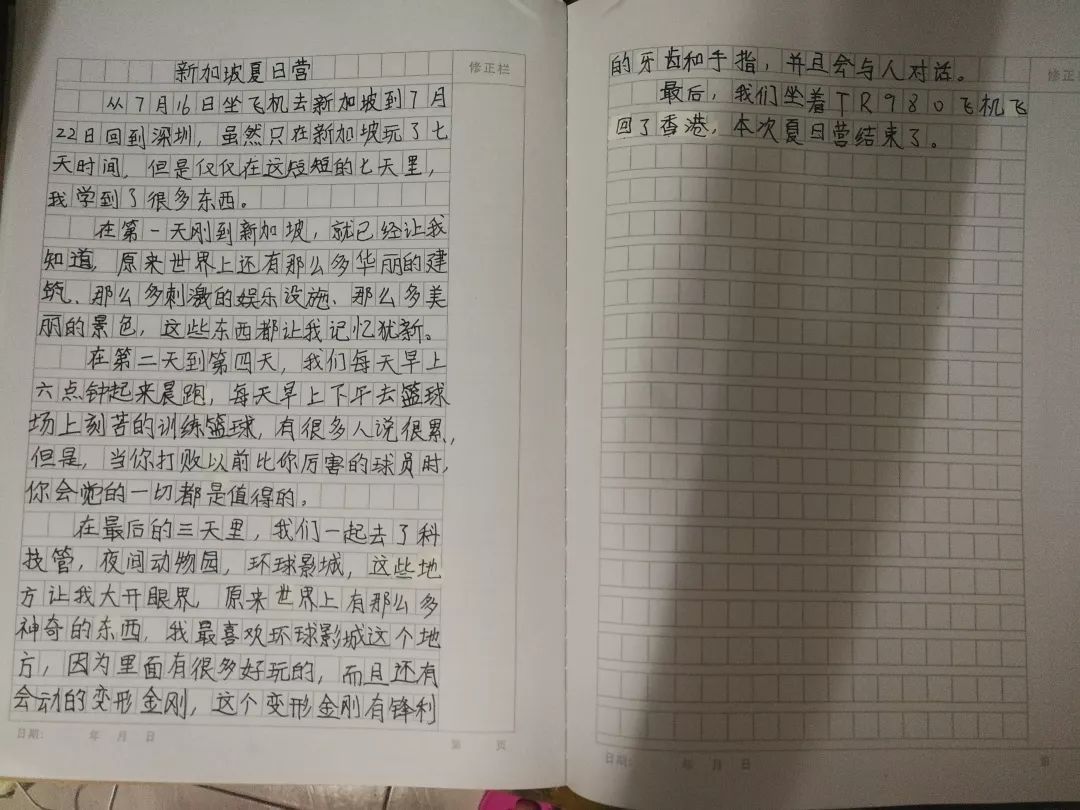 新加坡夏日营
修正栏
从7月16日坐飞机去新加坡到7月
22日回到深圳，虽然只在新加坡玩了七
天时间，但是仅仅在这短短的七天里，
我学到了很多东西。
在第一天刚到新加坡，就已经让我
知道，原来世界上还有那么多华丽的建
筑、那么多刺激的娱乐设施、那么多美
丽的景色，这些东西都让我记忆犹新。
在第二天到第四天，我们每天早上
六点钟起来晨跑，每天早上下午去篮球
场上刻苦的训练篮球，有很多人说很累，
但是，当你打败以前比你厉害的球员时，
你会觉的一切都是值得的。
在最后的三天里，我们一起去了科
技管，夜间动物园，环球影城，这些地
方让我大开眼界，原来世界上有那么多
神奇的东西，我最喜欢环球影城这个地
方，因为里面有很多好玩的，而且还有
会动的变形金刚，这个变形金刚有锋利
日期： 年 月 日
第 页
修正
的牙齿和手指，并且会与人对话。
最后，我们坐着TR980飞机飞
回了香港，本次夏日营结束了。
日期： 年 月 日
第